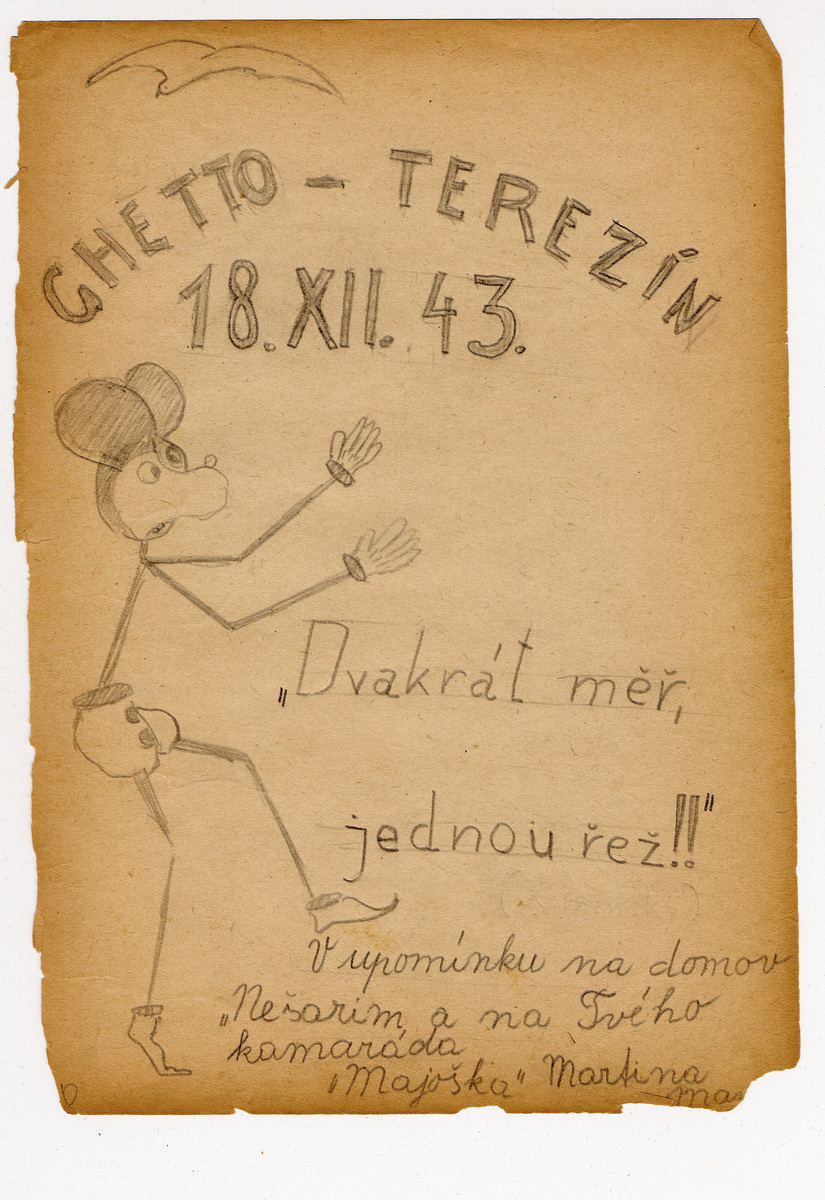 GHETTO - TEREZÍN
18. XII. 43.
„Dvakrát měř,
jednou řež!!"
V upomínku na domov
„Nešarim„ a na Tvého
kamaráda
„Majoška" Martina